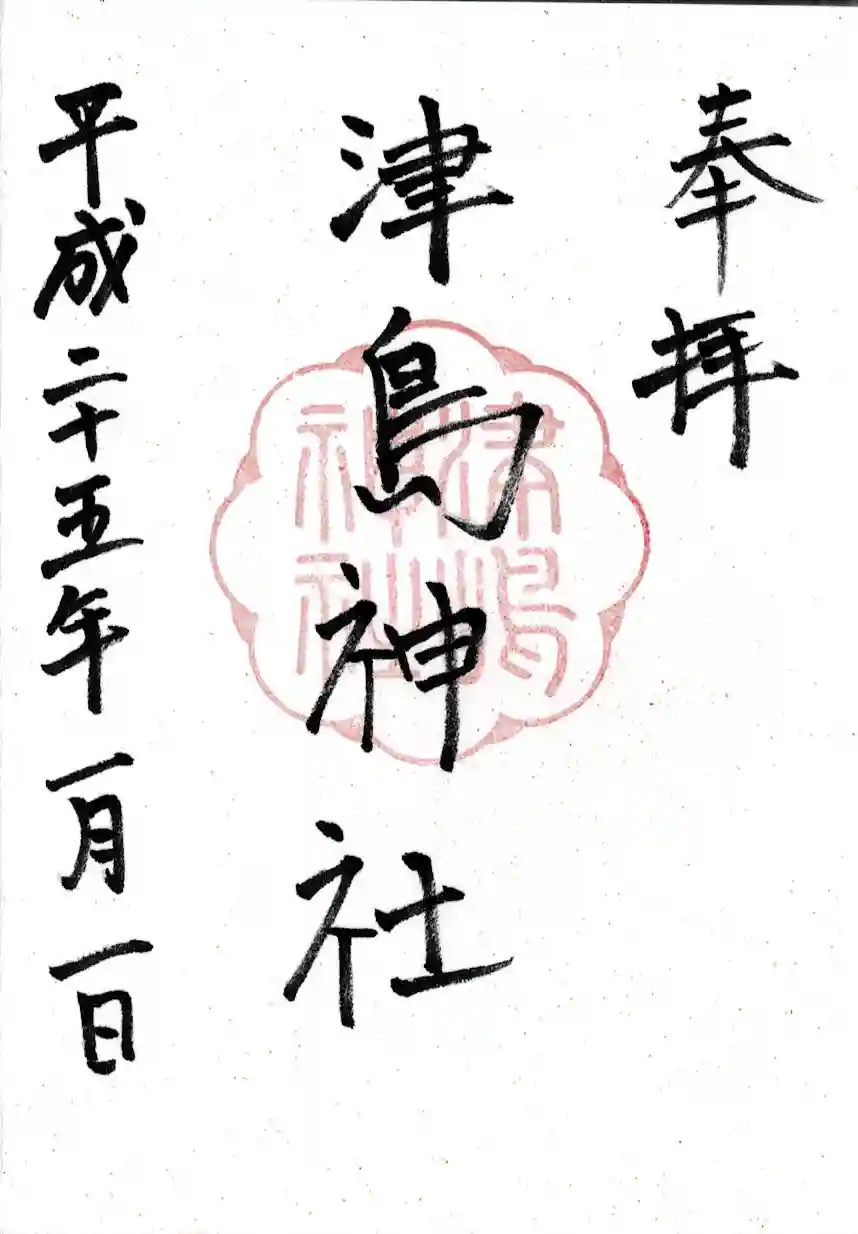 奉拝
津島神社
津嶋神社
平成二十五年一月一日